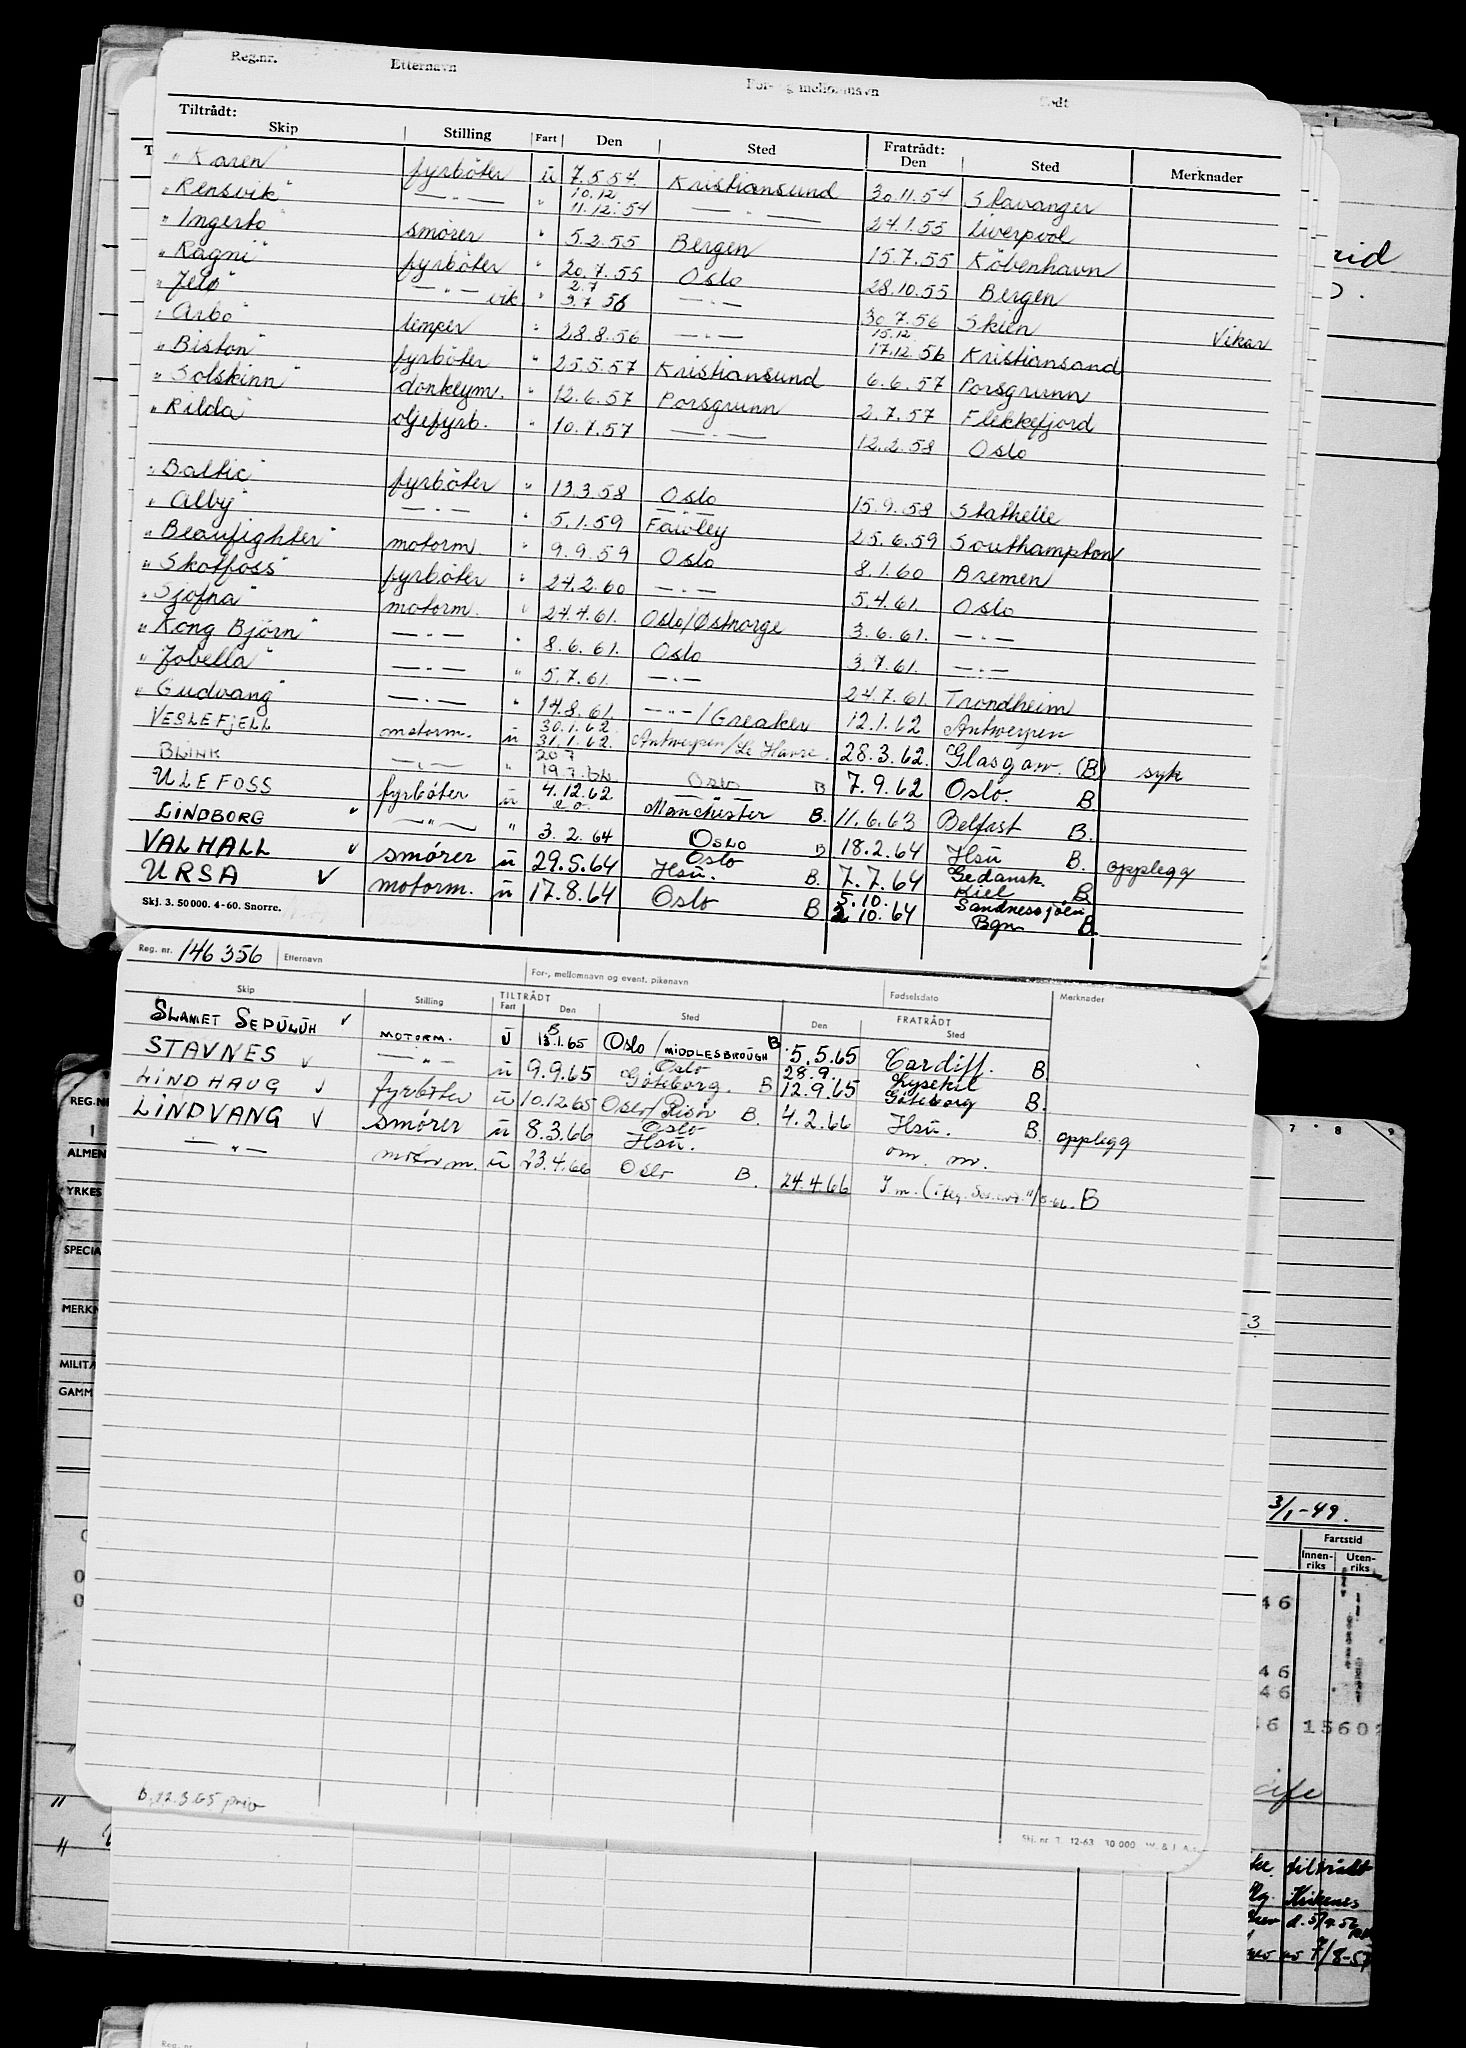 Reg.nr. Etternavn For- og mellomnavn Født
Tiltrådt: Skip Stilling Fart Den Sted Fratrådt: Den Sted Merknader
"Karen" fyrbøter ü 7.5.54 Kristiansund 30.11.54 Stavanger
"Rensvik" — " — " 10.12 11.12.54 — " — 24.1.55 Liverpool
"Ingerto" smører " 5.2.55 Bergen 15.7.55 København
"Ragni" fyrbøter " 20.7.55 Oslo 28.10.55 Bergen
"Jelø" — " — vik. " 2.7 3.7 56 — " — 30.7.56 Skien Vikar
"Arbo" limper " 28.8.56 — " — 15.12 17.12.56 Kristiansand
"Biston" fyrbøter " 25.5.57 Kristiansund 6.6.57 Porsgrunn
"Solskinn" donkeym. " 12.6.57 Porsgrunn 2.7.57 Flekkefjord
"Rilda" oljefyrb. " 10.7.57 — " — 12.2.58 Oslo
"Baltic" fyrbøter " 13.3.58 Oslo 15.9.58 Stathelle
"Alby" — " — " 5.1.59 Fawley 25.6.59 Southampton
"Beaufighter" motorm. " 9.9.59 Oslo 8.1.60 Bremen
"Skotfoss" fyrbøter " 24.2.60 — " — 5.4.61 Oslo
"Sjofna" motorm. " 24.4.61. Oslo/Østnorge 3.6.61. — " —
"Kong Bjørn" — " — " 8.6.61. Oslo 3.7.61. — " —
"Jobella" — " — " 5.7.61. — " — 24.7.61. Trondheim
"Gudvang" — " — " 14.8.61. — " — /Greaker 12.1.62 Antwerpen
VESLEFJELL motorm. ü 30.1.62. 31.1.62. Antwerpen/Le Havre. 28.3.62. Glasgow. (B) syk
BLINK — " — " 20 7 19.7.62 Oslo B 7.9.62 Oslo. B.
ULEFOSS fyrbøter ü 4.12.62 Manchester B. 11.6.63 Belfast B.
LINDBORG v — " — " 3.2.64 Oslo B 18.2.64 Hsu B. opplegg
VALHALL v smører ü 29.5.64 Oslo Hsu. B. 7.7.64 Gedansk. Kiel B
URSA v motorm. ü 17.8.64 Oslo B 5.10. 2 10.64 Sandnessjöen Bgn B.
Skj. 3. 50000. 4-60. Snorre.
Reg. nr. 146356 Etternavn For-, mellomnavn og event. pikenavn Fødselsdato Merknader
Skip Stilling TILTRÅDT Fart Den Sted Den FRATRÅDT Sted
SLAMET SEPULUH v MOTORM. ü 13.1.65 B Oslo/MIDDLESBROUGH B. 5.5.65 Cardiff. B.
STAVNES v — " — ü 9.9.65 Oslo Göteborg. B 28.9. 12.9.65 Lysekil Göteborg B.
LINDHAUG v fyrbøter ü 10.12.65 Oslo/Risör B. 4.2.66 Hsu. B. opplegg
LINDVANG v smører ü 8.3.66 Oslo Hsu. om. m.
— " — motorm. ü 23.4.66 Oslo B. 24.4.66 B
B.12.3.65 priv
Skj. nr. 3. 12-63 30 000
REG.N
ALMEN
YRKES
SPECIA
MERKN
MILITÆ
GAMM
7 8 9
3
3/1-49.
Fartstid
Innen-riks Uten-riks
46
46
46
6 1560
tiltrådt
Kirkenes
7/8-57
Reg. nr.